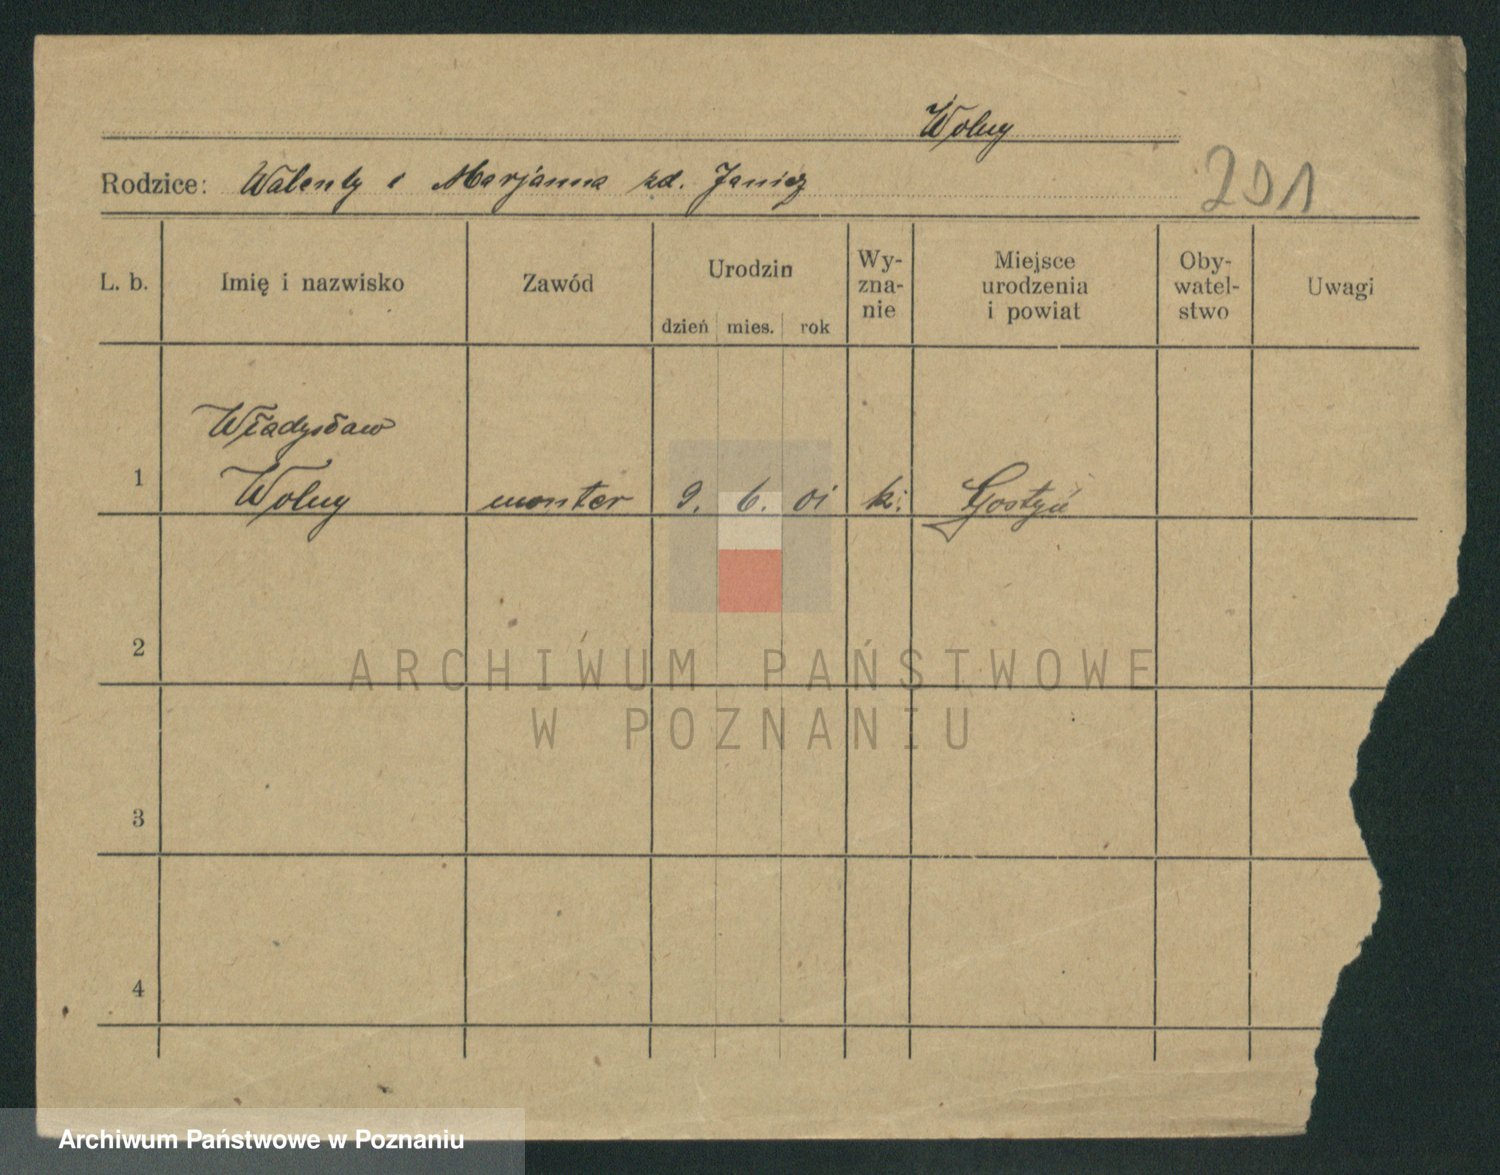 Wolny
Rodzice: Walenty i Marjanna zd. Janicz
201
L. b.
Imię i nazwisko
Zawód
Urodzin
dzień mies. rok
Wy-
zna-
nie
Miejsce
urodzenia
i powiat
Oby-
watel-
stwo
Uwagi
Władysław
1 Wolny monter 9. 6. 01 k. Gostyń
2
ARCHIWUM PAŃSTWOWE
W POZNANIU
3
4
Archiwum Państwowe w Poznaniu